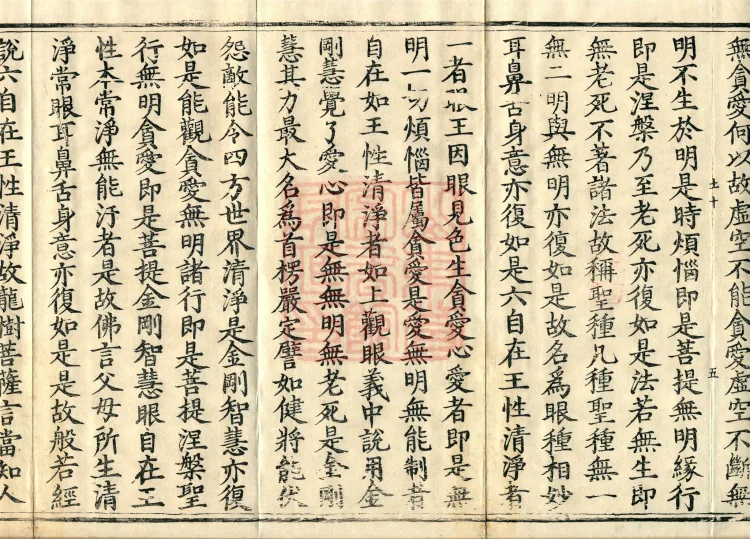 無貪愛何以故虛空不能貪愛虛空不斷無
土十 五
明不生於明是時煩惱即是菩提無明緣行
即是涅槃乃至老死亦復如是法若無生即
無老死不著諸法故稱聖種凡種聖種無一
無二明與無明亦復如是故名為眼種相妙
耳鼻舌身意亦復如是六自在王性清淨者
一者眼王因眼見色生貪愛心愛者即是無
明一切煩惱皆屬貪愛是愛無明無能制者
自在如王性清淨者如上觀眼義中說用金
剛慧覺了愛心即是無無明無老死是金剛
慧其力最大名為首楞嚴定譬如健將能伏
怨敵能令四方世界清淨是金剛智慧亦復
如是能觀貪愛無明諸行即是菩提涅槃聖
行無明貪愛即是菩提金剛智慧眼自在王
性本常淨無能汙者是故佛言父母所生清
淨常眼耳鼻舌身意亦復如是是故般若經
說六自在王性清淨故龍樹菩薩言當知人